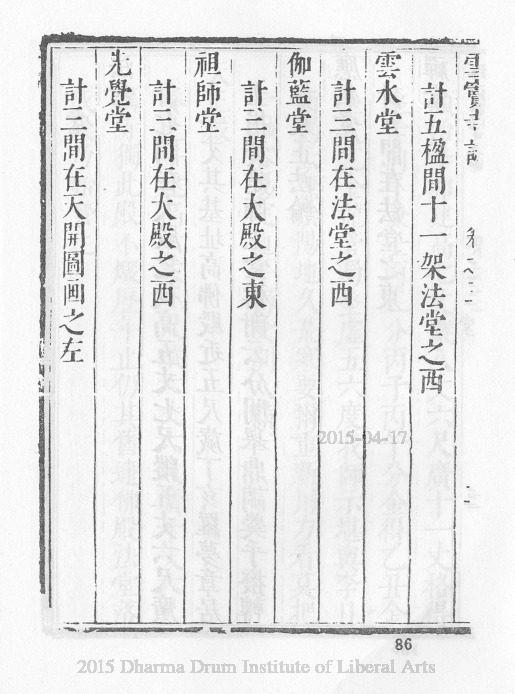 雪竇寺誌 卷之三
計五楹間十一架法堂之西
雲水堂
計三間在法堂之西
伽藍堂
計三間在大殿之東
祖師堂
計三間在大殿之西
先覺堂
計三間在天開圖画之左
2015-04-17
86
2015 Dharma Drum Institute of Liberal Arts